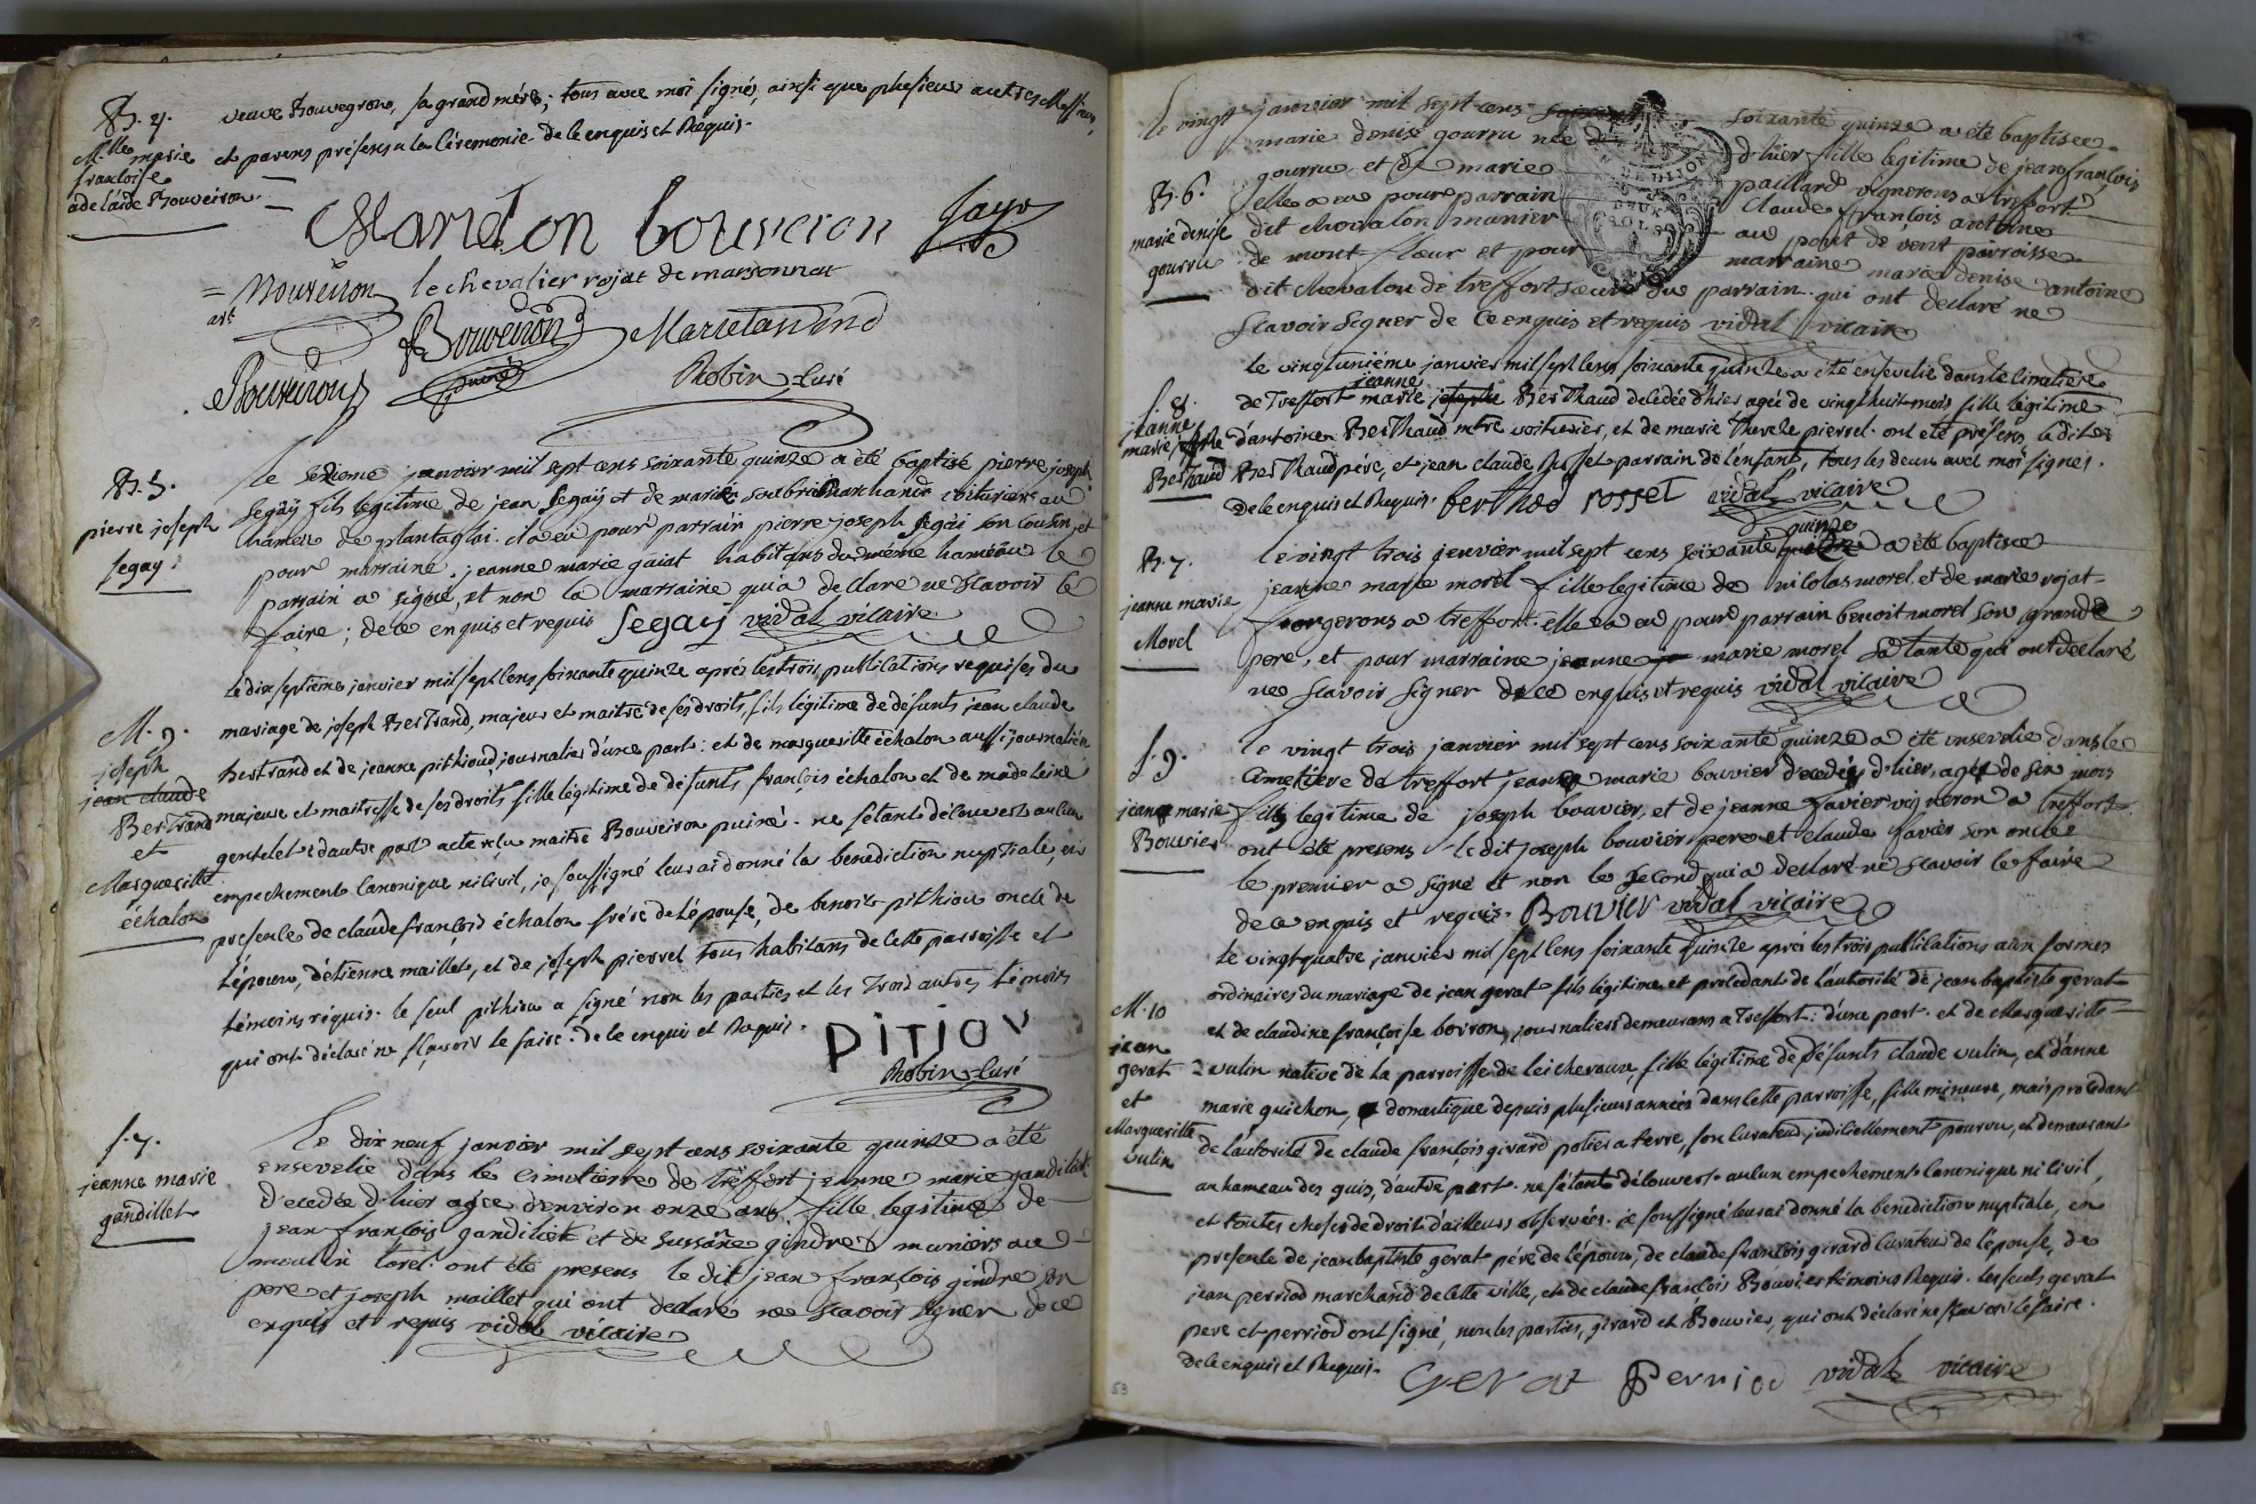 B. 4.
M.lle marie
françoise
adelaïde Bouveiron.
veuve Bouvegron, sa grand mére; tous avec moi signés, ainsi que plusieurs autres Messieurs,
et parens présens a la Céremonie de ce enquis et Requis.
Mandon bouveron
Bouveiron
le chevalier rojat de marsonnat
Bouveiron
puiné
Marietandend
Bouveiron
Robin Curé
B. 5.
pierre joseph
segay.
le sezieme janvier mil sept cens soixante quinze a été baptisé pierre joseph
segaÿ fils legitime de jean segaÿ et de marie marchands voituriers au
hameau de plantaglai. il a eu pour parrain pierre joseph segai son cousin, et
pour marraine jeanne marie gaiat habitans du même hameau le
parrain a signé, et non la marraine qui a declaré ne scavoir le
faire; de ce enquis et requis segaÿ vidal vicaire
M. 9.
joseph
jean claude
Bertrand
et
Margueritte
échalon
le dix septieme janvier mil sept cens soixante quinze aprés les trois publications requises du
mariage de joseph Bertrand, majeur et maitre de ses droits, fils légitime de défunts jean claude
bertrand et de jeanne pithioud, journalier d'une part: et de margueritte échalon aussi journaliére
majeure et maitresse de ses droits fille légitime de défunts françois échalon et de madeleine
gentelet d'autre part acte reçu maitre Bouveiron puiné. ne s'étant découvert aucun
empechement Canonique ni civil, je soussigné leur ai donné la benediction nuptiale, en
presence de claude françois échalon frére de l'épouse, de benoit pithiou oncle de
l'époux, d'étienne maillet, et de joseph pierrel tous habitans de cette parroisse et
témoins réquis. le seul pithiou a signé non les parties et les trois autres témoins
qui ont déclaré ne sçavoir le faire. de ce enquis et Requis.
PITIOU
Robin Curé
s. 7.
jeanne marie
gandillet
le dix neuf janvier mil sept cens soixante quinze a été
ensevelie dans le cimetierre de treffort jeanne marie gandilet
decedée d'hier agée d'environ onze ans fille legitime de
jean françois gandiliet et de sussane gindre muniers au
moulin torel. ont été presens le dit jean françois gindre son
pere et joseph maillet qui ont declaré ne scavoir signer de ce
enquis et requis vidal vicaire
B. 6.
marie denise
gourru
le vingt janvier mil sept cens soixante quinze a été baptisée
marie denise gourru née d'hier fille legitime de jean françois
gourru et de marie paillard vignerons a treffort
elle a eu pour parrain Claude françois antoine
dit chevalon munier au pont de vent parroisse
de mont fleur et pour marraine marie denise antoine
dit chevalon de treffort soeur du parrain. qui ont declaré ne
scavoir signer de ce enquis et requis vidal vicaire
s. 8.
jeanne
marie
Berthaud
le vingtunième janvier mil sept cens soixante quinze a été ensevelie dans le cimetiére
de Treffort marie jeanne Berthaud decédée d'hier agée de vingt huit mois, fille légitime
d'antoine Berthaud mtre voiturier, et de marie thereze pierrel. ont été présens, le dit
Berthaud pére, et jean claude Rosset parrain de l'enfant, tous les deux avec moi signés.
de ce enquis et Requis. berthod rosset vidal vicaire
B. 7.
jeanne marie
Morel
le vingt trois janvier mil sept cens soixante quinze a été baptisée
jeanne marie morel fille legitime de nicolas morel et de marie rojat
forgerons a treffort. elle a eu pour parrain benoit morel son grand
pere, et pour marraine jeanne marie morel sa tante qui ont declaré
ne scavoir signer de ce enquis et requis vidal vicaire
s. 9.
jeanne marie
Bouvier
le vingt trois janvier mil sept cens soixante quinze a été ensevelie dans le
cimetiere de treffort jeanne marie bouvier decedée d'hier, agée de six mois
fille legitime de joseph bouvier, et de jeanne favier vigneron a treffort
ont été presens le dit joseph bouvier pere et claude favier son oncle
le premier a signé et non le second qui a declaré ne scavoir le faire
de ce enquis et requis. Bouvier vidal vicaire
M. 10
jean
gerat
et
Margueritte
vulin
le vingtquatre janvier mil sept cens soixante quinze aprés les trois publications aux formes
ordinaires du mariage de jean gerat fils légitime et procédant de l'autorité de jean baptiste gerat
et de claudine françoise borron, journaliers demeurans a Treffort: d'une part. et de Margueritte
vulin native de la parroisse de leicheroux, fille légitime de défunts claude vulin, et d'anne
marie guichon, domestique depuis plusieurs années dans cette parroisse, fille mineure, mais procédant
de l'autorité de claude françois girard potier a terre, son Curateur judiciellement pourvu, et demeurant
au hameau des guis, d'autre part. ne s'étant découvert aucun empechement Canonique ni civil,
et toutes choses de droit d'ailleurs observées. je soussigné leur ai donné la benediction nuptiale, en
presence de jean baptiste gerat pére de l'époux, de claude françois girard Curateur de l'épouse, de
jean perriod marchand de cette ville, et de claude françois Bouvier témoins Requis. les seuls gerat
pere et perriod ont signé, non les parties, girard et Bouvier, qui ont déclaré ne sçavoir le faire.
de ce enquis et Requis.
Gerat Perriod vidal vicaire
53